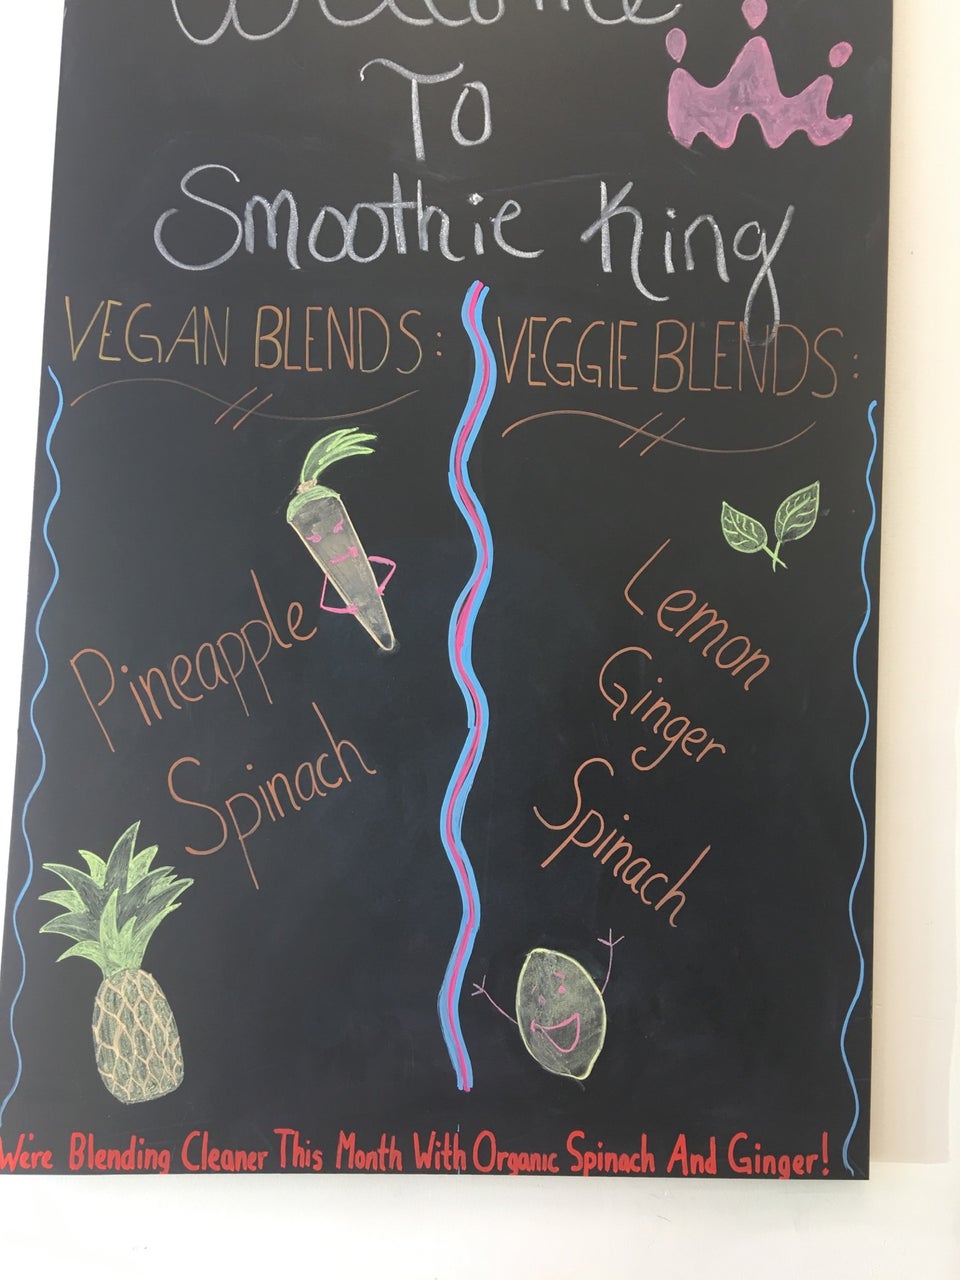 Welcome
To
Smoothie King
VEGAN BLENDS:
Pineapple
Spinach
VEGGIE BLENDS:
Lemon
Ginger
Spinach
We're Blending Cleaner This Month With Organic Spinach And Ginger!